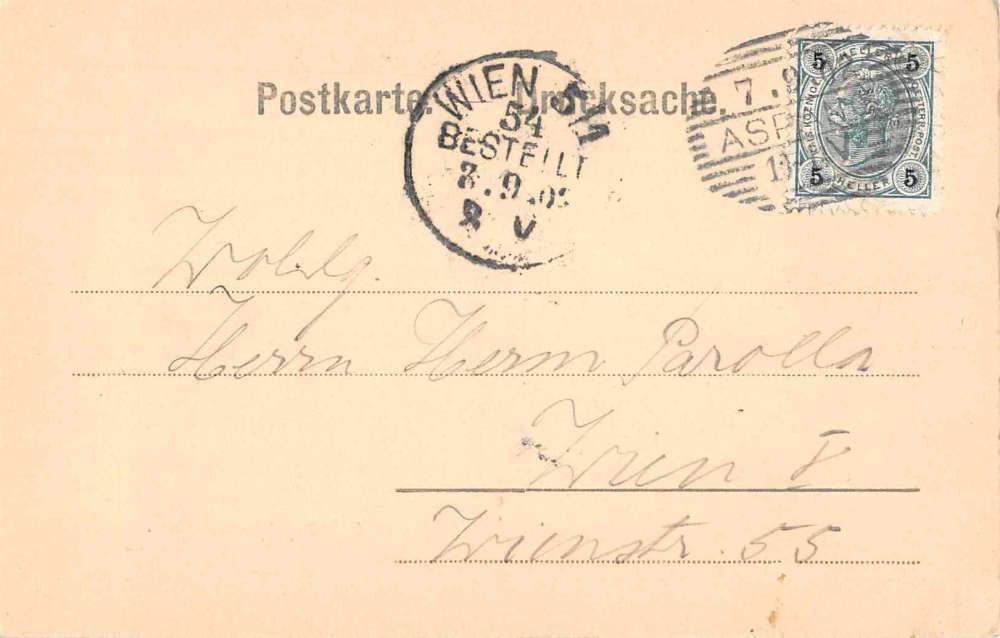 Postkarte. Drucksache.
WIEN 5/1
54
BESTELLT
8 V
7.9
ASP
5 5
HELLER
5 5
Wohlg.
Herrn Herm Parolla
Wien V
Wienstr. 55